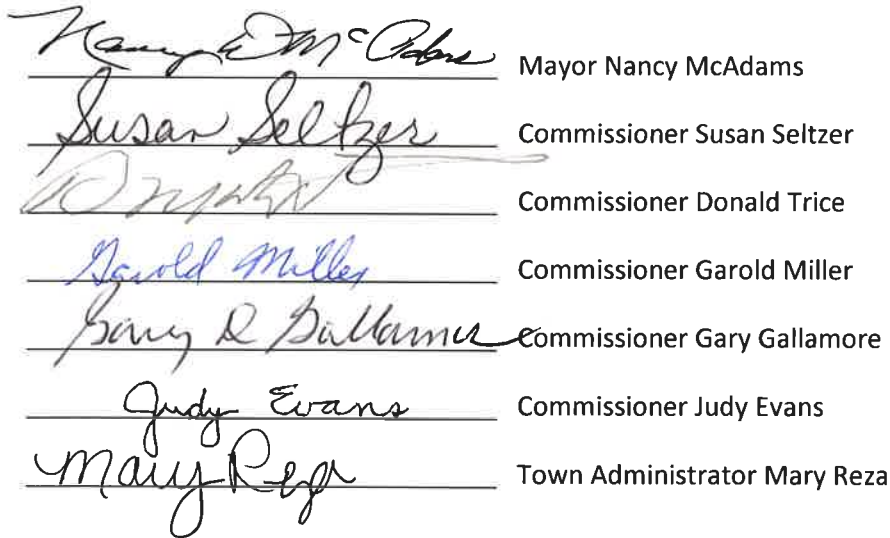 Nancy D McAdams Mayor Nancy McAdams
Susan Seltzer Commissioner Susan Seltzer
Commissioner Donald Trice
Garold Miller Commissioner Garold Miller
Gary D Gallamore Commissioner Gary Gallamore
Judy Evans Commissioner Judy Evans
Mary Reza Town Administrator Mary Reza